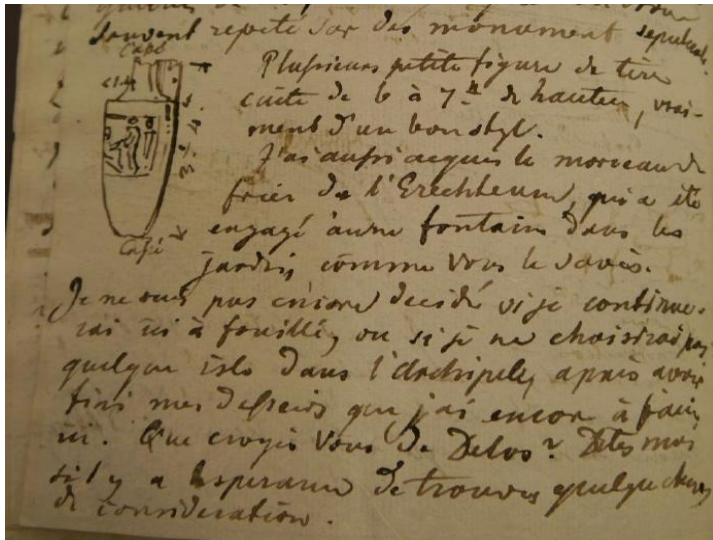 souvent repeté sur des monument sepulcals.
Casé
Plusieurs petite figure de tere
cuite de 6 à 7 de hauteur, vrai-
ment d'un bon styl.
J'ai aussi acquis le morceau de
frier de l'Erechteum, qui a ete
engagé à une fontain dans les
jardin, comme vous le savés.
Casé
Je ne suis pas encore decidé si je continue-
rai ici à fouillé, ou si je ne choisirai pas
quelque isle dans l'Archipel, apres avoir
fini mes desseins que j'ai encor à faire
ici. Que croyés Vous de Delos? Dites moi
s'il y a esperance de trouver quelque chose
de consideration.